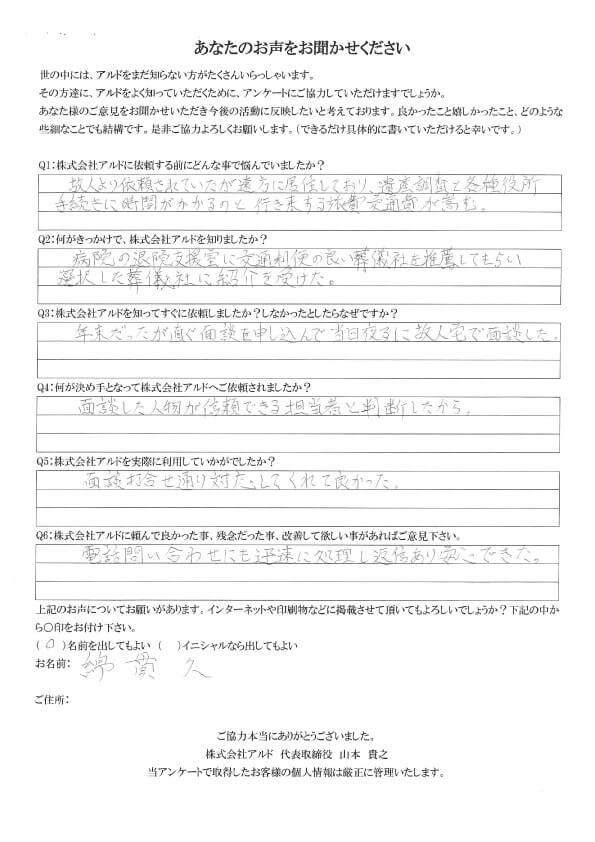 あなたのお声をお聞かせください
世の中には、アルドをまだ知らない方がたくさんいらっしゃいます。
その方達に、アルドをよく知っていただくために、アンケートにご協力していただけますでしょうか。
あなた様のご意見をお聞かせいただき今後の活動に反映したいと考えております。良かったこと嬉しかったこと、どのような
些細なことでも結構です。是非ご協力よろしくお願いします。(できるだけ具体的に書いていただけると幸いです。)
Q1:株式会社アルドに依頼する前にどんな事で悩んでいましたか?
故人より依頼されていたが遠方に居住しており、遺産調査と各種役所
手続きに時間がかかるのと行き来する旅費交通費が嵩む。
Q2:何がきっかけで、株式会社アルドを知りましたか?
病院の退院支援室に交通利便の良い葬儀社を推薦してもらい
選択した葬儀社に紹介を受けた。
Q3:株式会社アルドを知ってすぐに依頼しましたか?しなかったとしたらなぜですか?
年末だったが直ぐ面談を申し込んで当日夜るに故人宅で面談した。
Q4:何が決め手となって株式会社アルドへご依頼されましたか?
面談した人物が信頼できる担当者と判断したから。
Q5:株式会社アルドを実際に利用していかがでしたか?
面談打合せ通り対応してくれて良かった。
Q6:株式会社アルドに頼んで良かった事、残念だった事、改善して欲しい事があればご意見下さい。
電話問い合わせにも迅速に処理し返信あり安心できた。
上記のお声についてお願いがあります。インターネットや印刷物などに掲載させて頂いてもよろしいでしょうか?下記の中か
ら〇印をお付け下さい。
(〇)名前を出してもよい ( )イニシャルなら出してもよい
お名前: 綿貫 久
ご住所:
ご協力本当にありがとうございました。
株式会社アルド 代表取締役 山本 貴之
当アンケートで取得したお客様の個人情報は厳正に管理いたします。